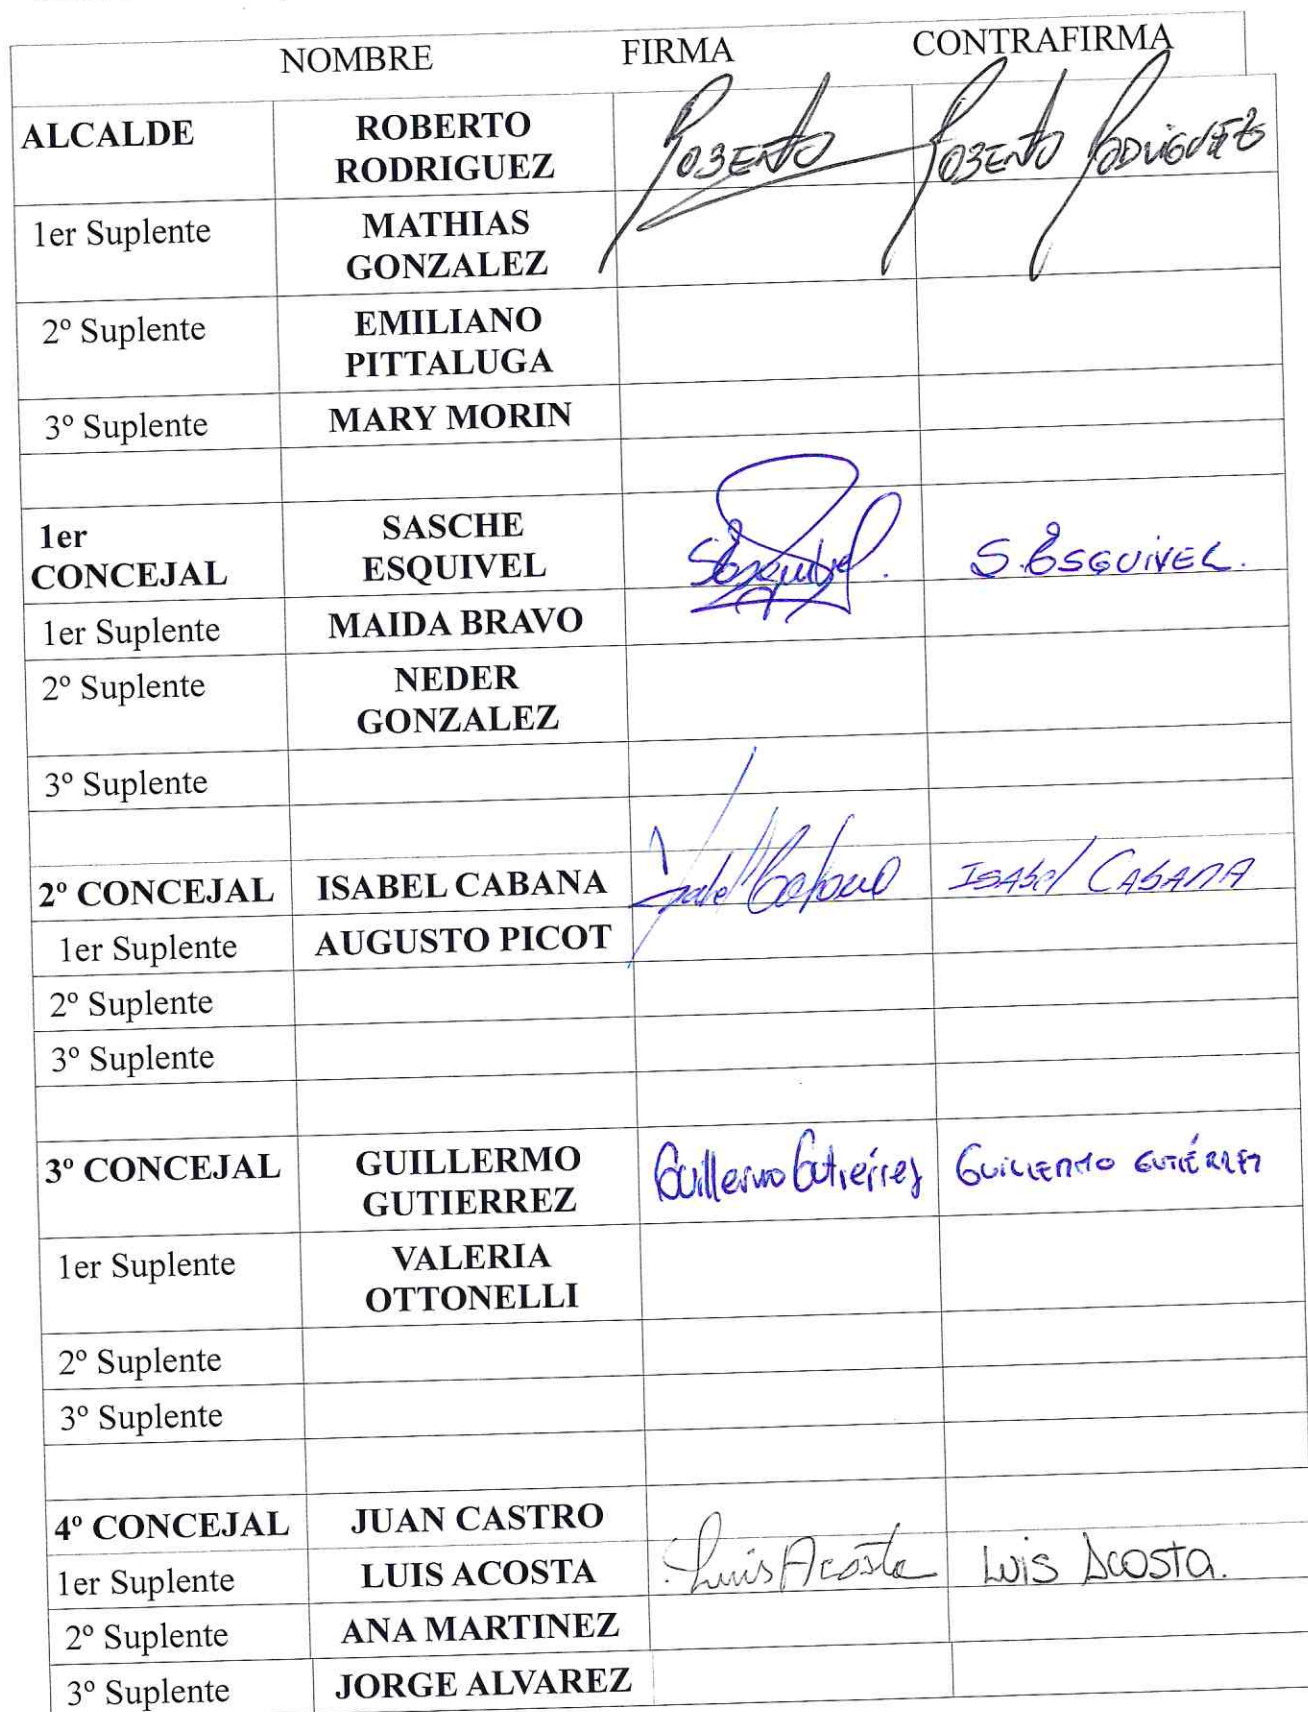 NOMBRE FIRMA CONTRAFIRMA
ALCALDE ROBERTO RODRIGUEZ Roberto Roberto Rodriguez
1er Suplente MATHIAS GONZALEZ
2º Suplente EMILIANO PITTALUGA
3º Suplente MARY MORIN
1er CONCEJAL SASCHE ESQUIVEL SEsquivel. S. ESQUIVEL.
1er Suplente MAIDA BRAVO
2º Suplente NEDER GONZALEZ
3º Suplente
2º CONCEJAL ISABEL CABANA Isabel Cabana ISAbel CABANA
1er Suplente AUGUSTO PICOT
2º Suplente
3º Suplente
3º CONCEJAL GUILLERMO GUTIERREZ Guillermo Gutiérrez GUILLERMO GUTIÉRREZ
1er Suplente VALERIA OTTONELLI
2º Suplente
3º Suplente
4º CONCEJAL JUAN CASTRO
1er Suplente LUIS ACOSTA Luis Acosta Luis Acosta.
2º Suplente ANA MARTINEZ
3º Suplente JORGE ALVAREZ